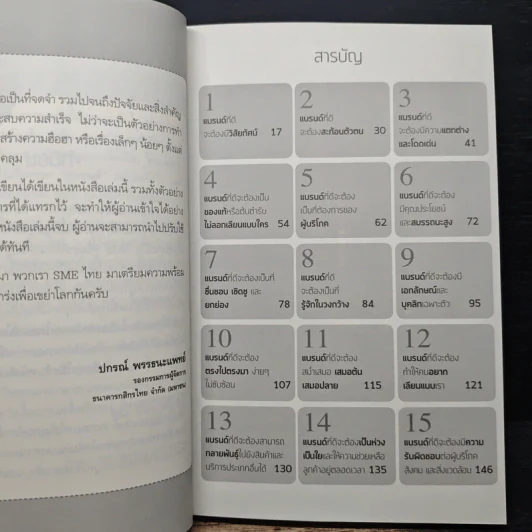 อเป็นที่จดจำ รวมไปจนถึงปัจจัยและสิ่งสำคัญ
ะสบความสำเร็จ ไม่ว่าจะเป็นตัวอย่างการทำ
สร้างความฮือฮา หรือเรื่องเล็กๆ น้อยๆ ตั้งแต่
คลุม
เขียนได้เขียนในหนังสือเล่มนี้ รวมทั้งตัวอย่าง
ารที่ได้แทรกไว้ จะทำให้ผู้อ่านเข้าใจได้อย่าง
หนังสือเล่มนี้จบ ผู้อ่านจะสามารถนำไปปรับใช้
ได้ทันที
มา พวกเรา SME ไทย มาเตรียมความพร้อม
กร่งเพื่อเขย่าโลกกันครับ
ปกรณ์ พรรธนะแพทย์
รองกรรมการผู้จัดการ
ธนาคารกสิกรไทย จำกัด (มหาชน)
สารบัญ
1
แบรนด์ที่ดี
จะต้องมีวิสัยทัศน์ 17
2
แบรนด์ที่ดี
จะต้องสะท้อนตัวตน 30
3
แบรนด์ที่ดี
จะต้องมีความแตกต่าง
และโดดเด่น 41
4
แบรนด์ที่ดีจะต้องเป็น
ของแท้หรือต้นตำรับ
ไม่ลอกเลียนแบบใคร 54
5
แบรนด์ที่ดีจะต้อง
เป็นที่ต้องการของ
ผู้บริโภค 62
6
แบรนด์ที่ดีจะต้อง
มีคุณประโยชน์
และสมรรถนะสูง 72
7
แบรนด์ที่ดีจะต้องเป็นที่
ชื่นชอบ เชิดชู และ
ยกย่อง 78
8
แบรนด์ที่ดี
จะต้องเป็นที่
รู้จักในวงกว้าง 84
9
แบรนด์ที่ดีจะต้องมี
เอกลักษณ์และ
บุคลิกเฉพาะตัว 95
10
แบรนด์ที่ดีจะต้อง
ตรงไปตรงมา ง่ายๆ
ไม่ซับซ้อน 107
11
แบรนด์ที่ดีจะต้อง
สม่ำเสมอ เสมอต้น
เสมอปลาย 115
12
แบรนด์ที่ดีจะต้อง
ทำให้คนอยาก
เลียนแบบเรา 121
13
แบรนด์ที่ดีจะต้องสามารถ
กลายพันธุ์ไปยังสินค้าและ
บริการประเภทอื่นได้ 130
14
แบรนด์ที่ดีจะต้องเป็นห่วง
เป็นใยและให้ความช่วยเหลือ
ลูกค้าอยู่ตลอดเวลา 135
15
แบรนด์ที่ดีจะต้องมีความ
รับผิดชอบต่อผู้บริโภค
สังคม และสิ่งแวดล้อม 146